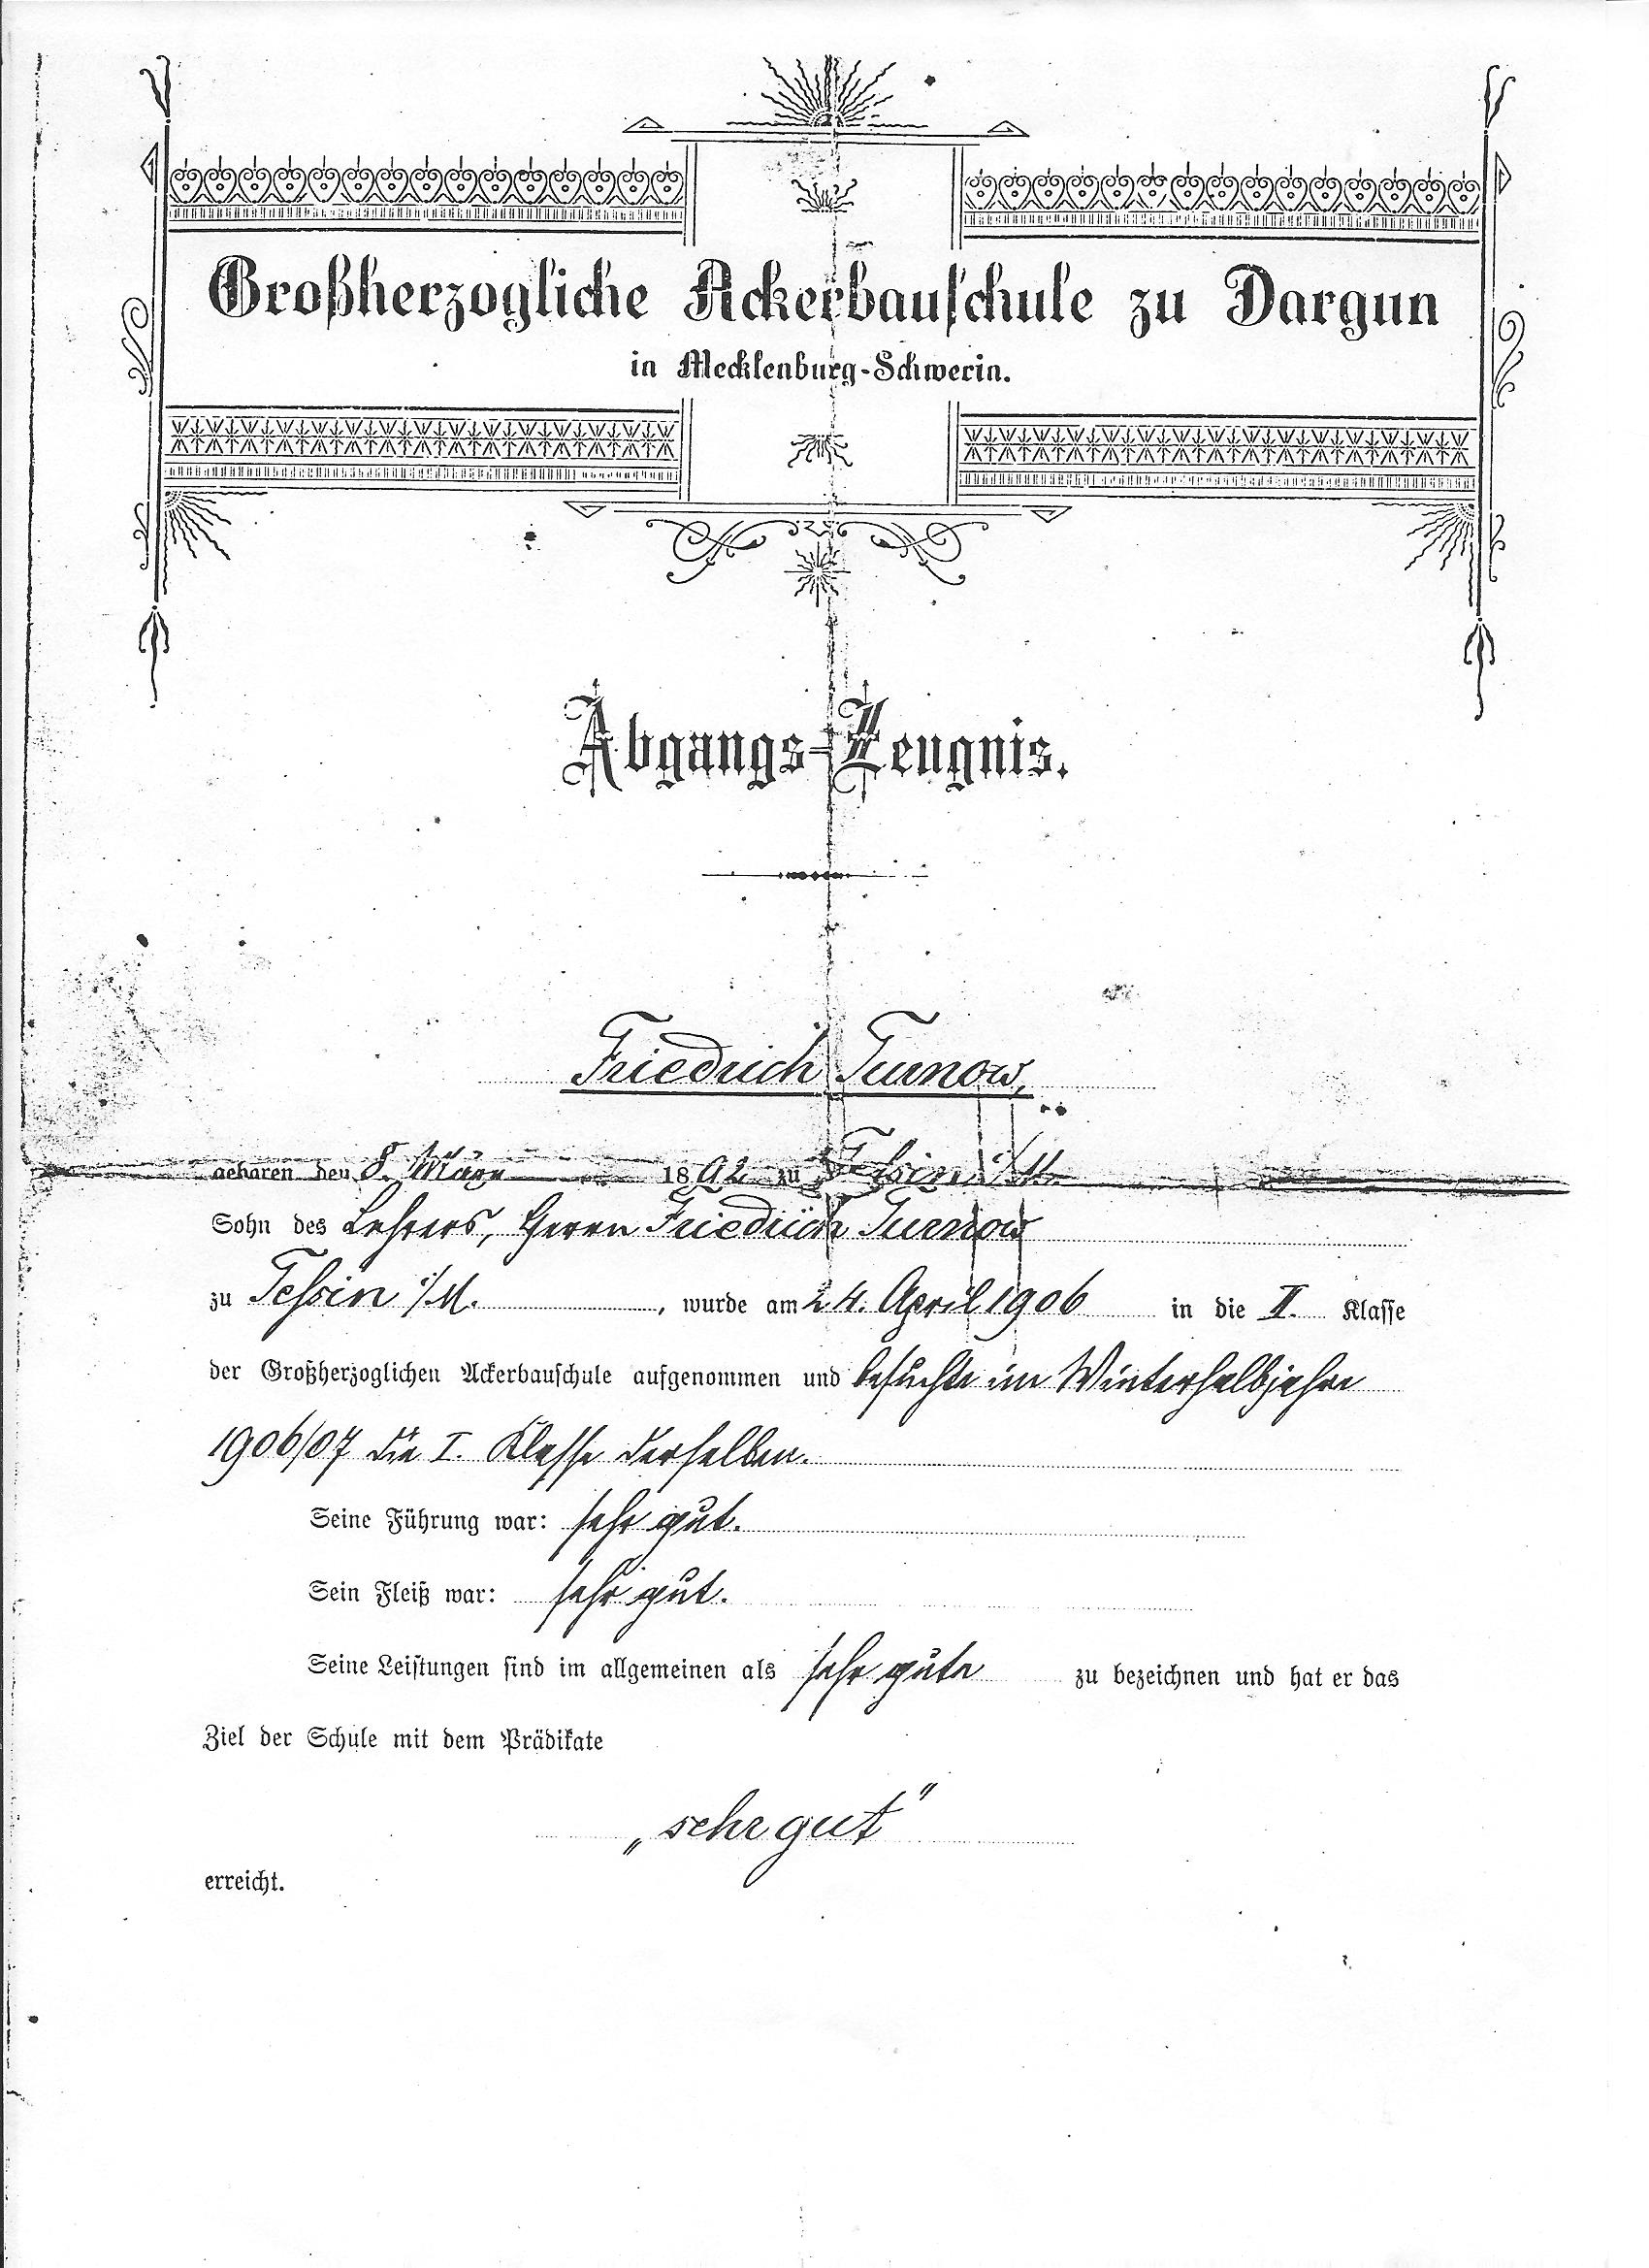 Großherzogliche Ackerbauschule zu Dargun
in Mecklenburg-Schwerin.
Abgangs-Zeugnis.
Friedrich Turnow,
geboren den 8. März 1892 zu Tessin i/M.
Sohn des Lehrers, Herrn Friedrich Turnow
zu Tessin i/M. , wurde am 24. April 1906 in die II. Klasse
der Großherzoglichen Ackerbauschule aufgenommen und besuchte im Winterhalbjahre
1906/07 die I. Klasse derselben.
Seine Führung war: sehr gut.
Sein Fleiß war: sehr gut.
Seine Leistungen sind im allgemeinen als sehr gute zu bezeichnen und hat er das
Ziel der Schule mit dem Prädikate
„sehr gut"
erreicht.